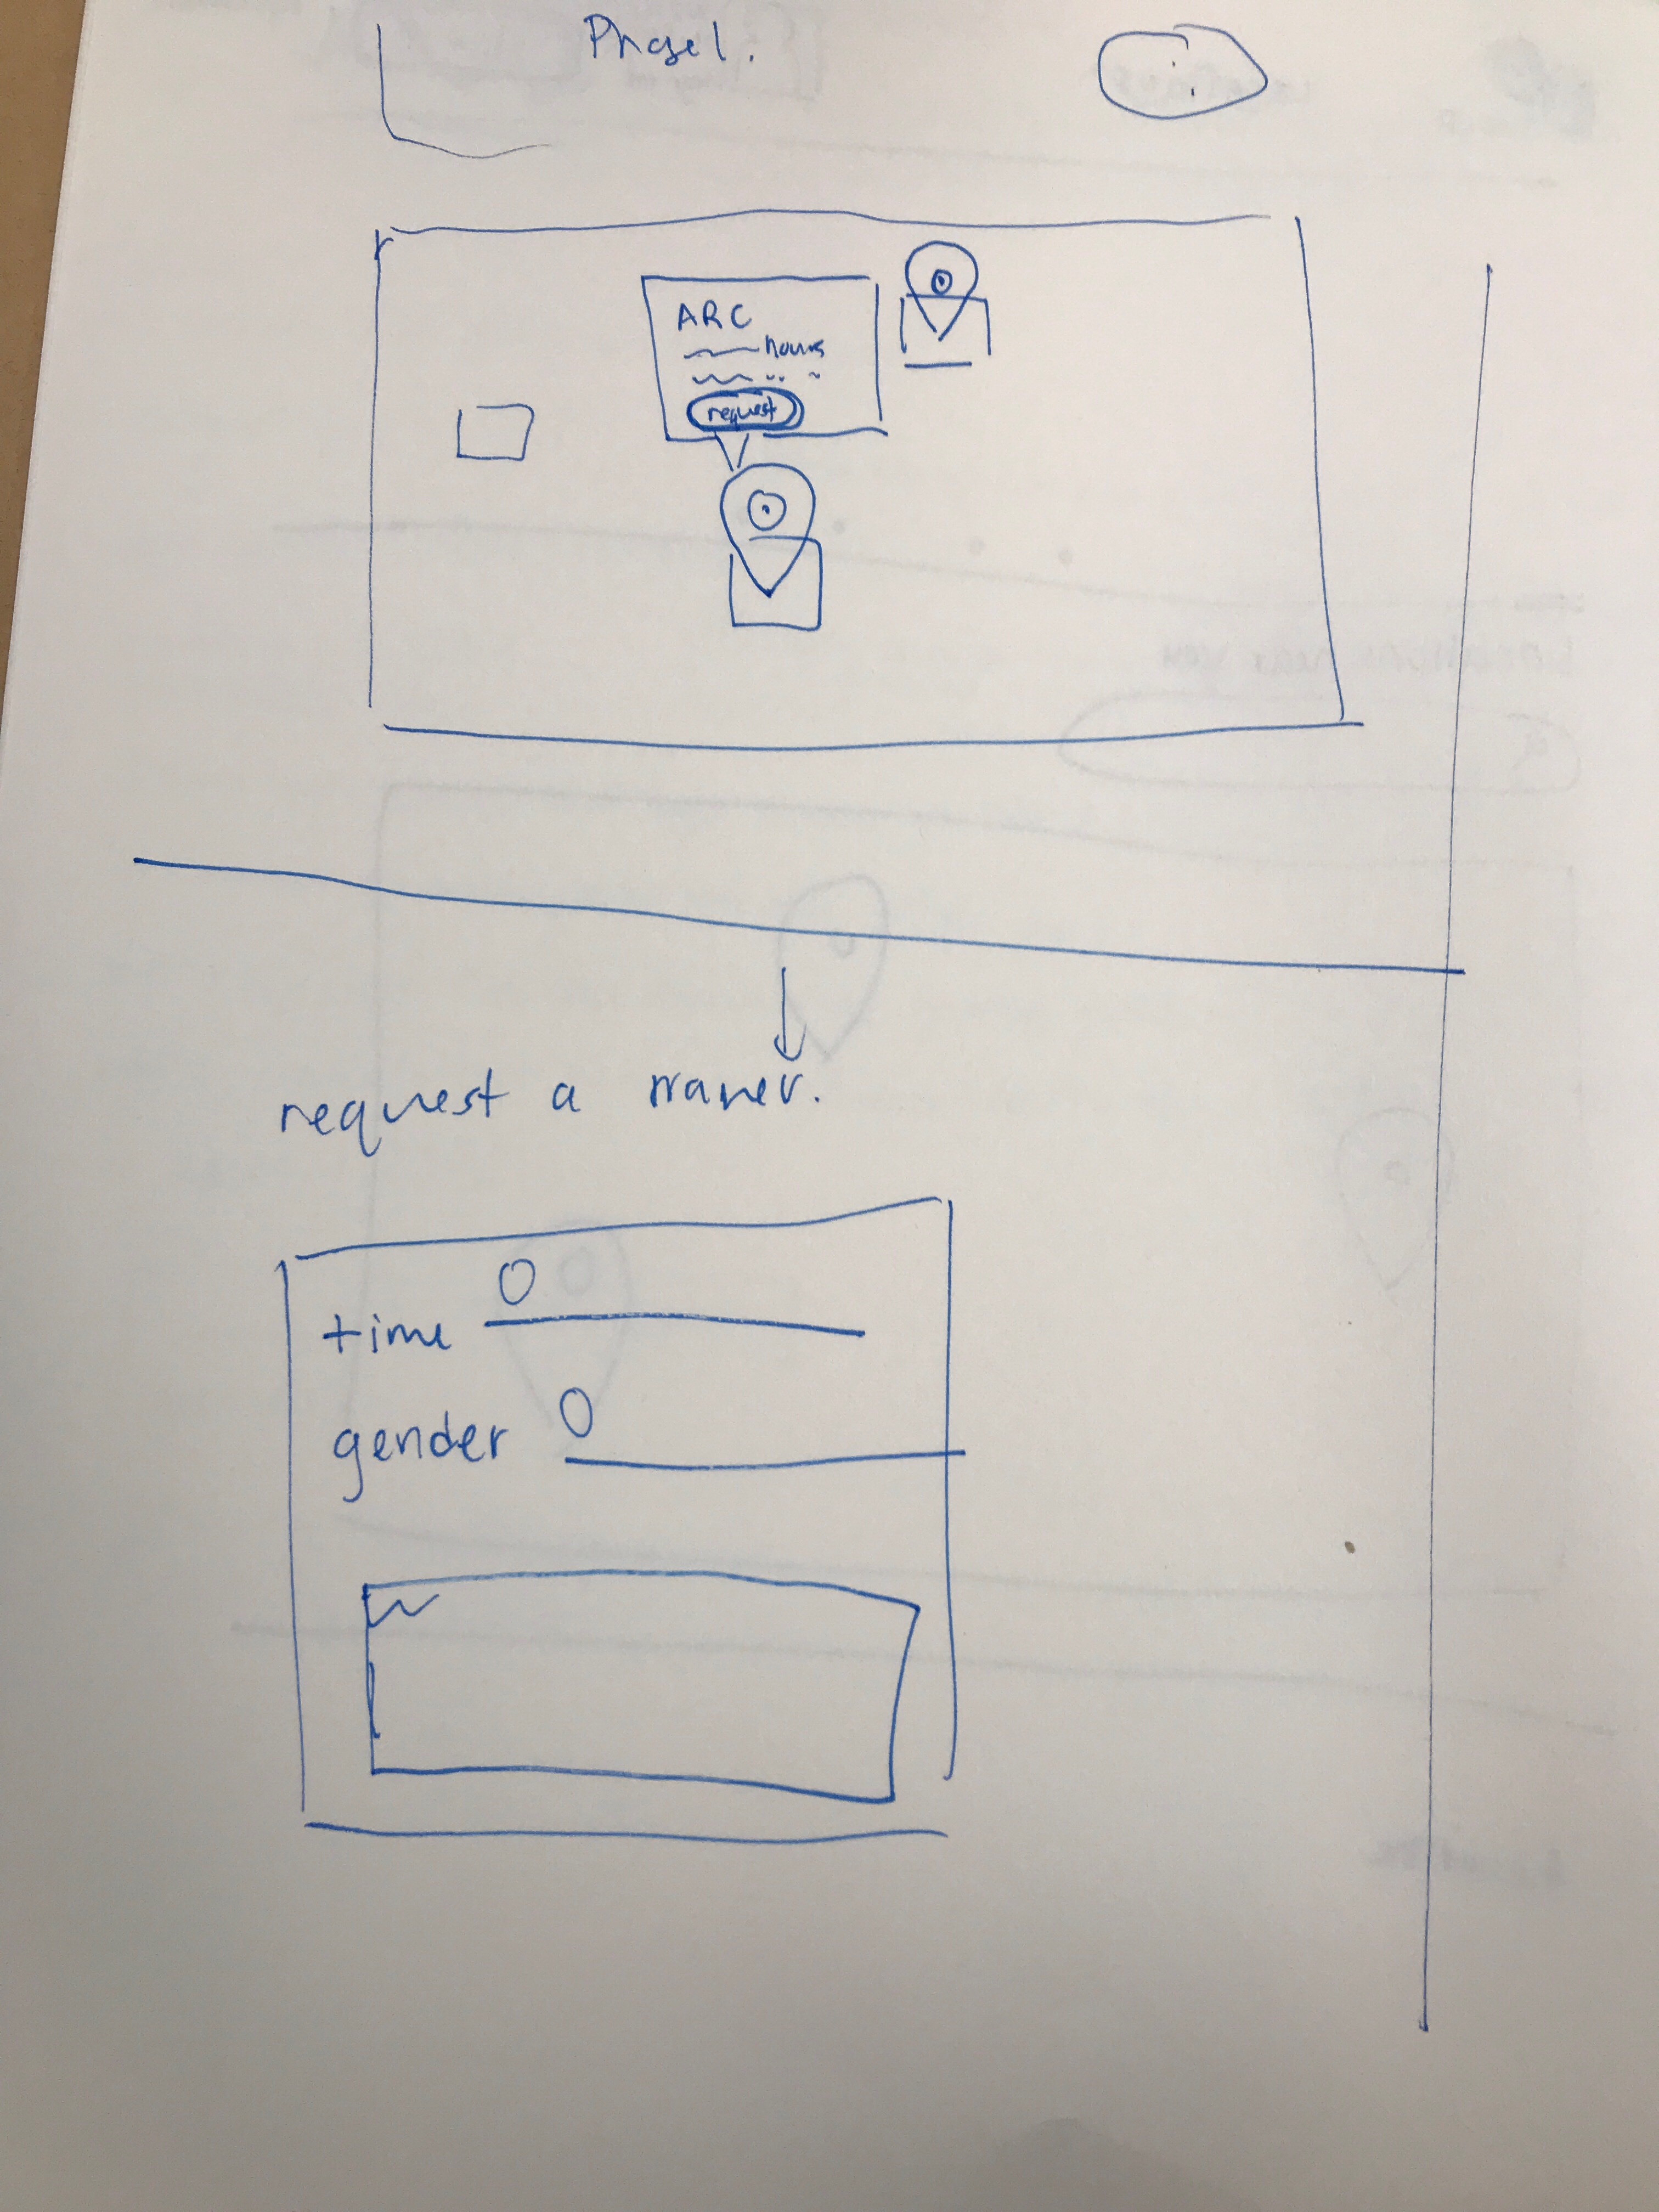 Phase 1.
ARC
hours
request
request a
time
gender